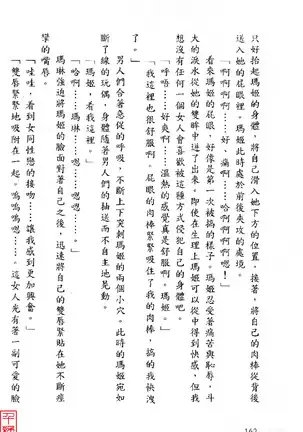 只好抬起瑪姬的身體,將自己滑入她下方的位置。接著,將自己的肉棒從背後
送入她的屁眼。瑪姬此時處於前後夾攻的處境。
「啊啊啊……好、痛啊……啊啊啊嗯!」
看來瑪姬的屁眼,好像是第一次被搞的樣子。瑪姬忍受著痛苦與恥辱,斗
大的淚水從她的雙眸中迸了出來,即使在生理上瑪姬可以從中得到快感,但我
想沒有任何一個女人會喜歡被這種方式侵犯自己的身體吧。
「呼唔……好燙啊……溫熱的感覺真是舒服啊。瑪姬。」
「我這裡也很舒服啊。屁眼的肉棒緊緊吸住了我的肉棒,搞的我快洩
了。」
男人們合著急促的呼吸,不斷上下突刺瑪姬的兩個小穴。此時的瑪姬宛如
斷了線的玩偶,身體隨著男人們的抽送而不自主地晃動。
「瑪姬,看我這裡。」
「哈啊……瑪琳!嗯……嗯嗯……。」
瑪琳強迫將瑪姬的臉面對著自己之後,迅速將自己的雙唇緊貼在她不斷痙
攣的嘴唇。
「哇哇,看到女同性戀的接吻……讓我感到更加興奮。」
「雙唇緊緊地吸附在一起。嗚嗚嗯……。這女人光有著一副可愛的臉
162